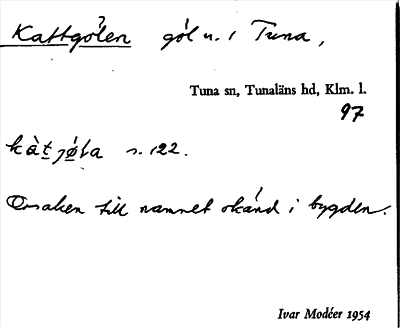 Kattgölen göl n. i Tuna,
Tuna sn, Tunaläns hd, Klm. l.
97
s. 122.
Orsaken till namnet okänd i bygden.
Ivar Modéer 1954